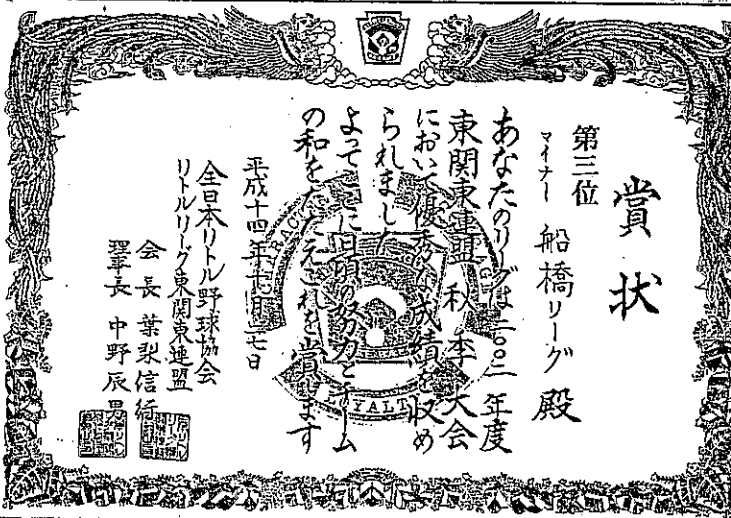 賞状
第三位
マイナー 船橋リーグ 殿
あなたのリーグは二〇〇二年度
東関東連盟 秋季大会
において優秀な成績を収め
られました
よってここに日頃の努力とチーム
の和をたたえこれを賞します
平成十四年
全日本リトル野球協会
リトルリーグ東関東連盟
会長 葉梨信行
理事長 中野辰男
LOYALTY